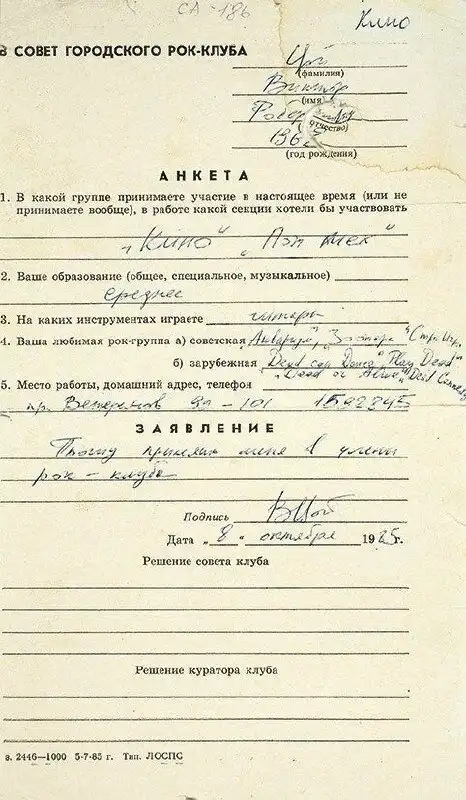 СА-186
Кино
В СОВЕТ ГОРОДСКОГО РОК-КЛУБА
Цой
(фамилия)
Виктор
(имя)
отчество)
(год рождения)
АНКЕТА
1. В какой группе принимаете участие в настоящее время (или не
принимаете вообще), в работе какой секции хотели бы участвовать
„Кино"
2. Ваше образование (общее, специальное, музыкальное)
среднее
3. На каких инструментах играете гитара
4. Ваша любимая рок-группа а) советская „Аквариум", „Зоопарк"
б) зарубежная Dead can Dance „Play Dead"
„Dead or Alive" Dead Kennedy
5. Место работы, домашний адрес, телефон
пр. Ветеранов 99 - 101 1592345
ЗАЯВЛЕНИЕ
Прошу принять меня в члены
рок-клуба
Подпись ВЦой
Дата „8" октября 1985г.
Решение совета клуба
Решение куратора клуба
з. 2446—1000 5-7-85 г. Тип. ЛОСПС